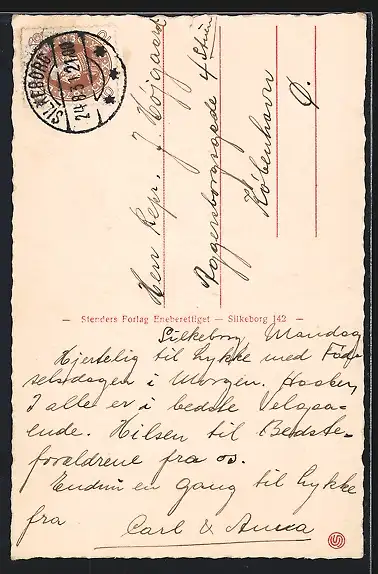 SILKEBORG
24.8.31.21-00
Herr Repr. J. Højgaard
Aggersborgsgade 4 Stuen
København
Ø.
— Stenders Forlag Eneberettiget — Silkeborg 142 —
Silkeborg Mandag
Hjertelig til Lykke med Fød-
selsdagen i Morgen. Haaber
I alle er i bedste Velgaa-
ende. Hilsen til Bedste-
forældrene fra os.
Endnu en Gang til Lykke
fra Carl & Anna